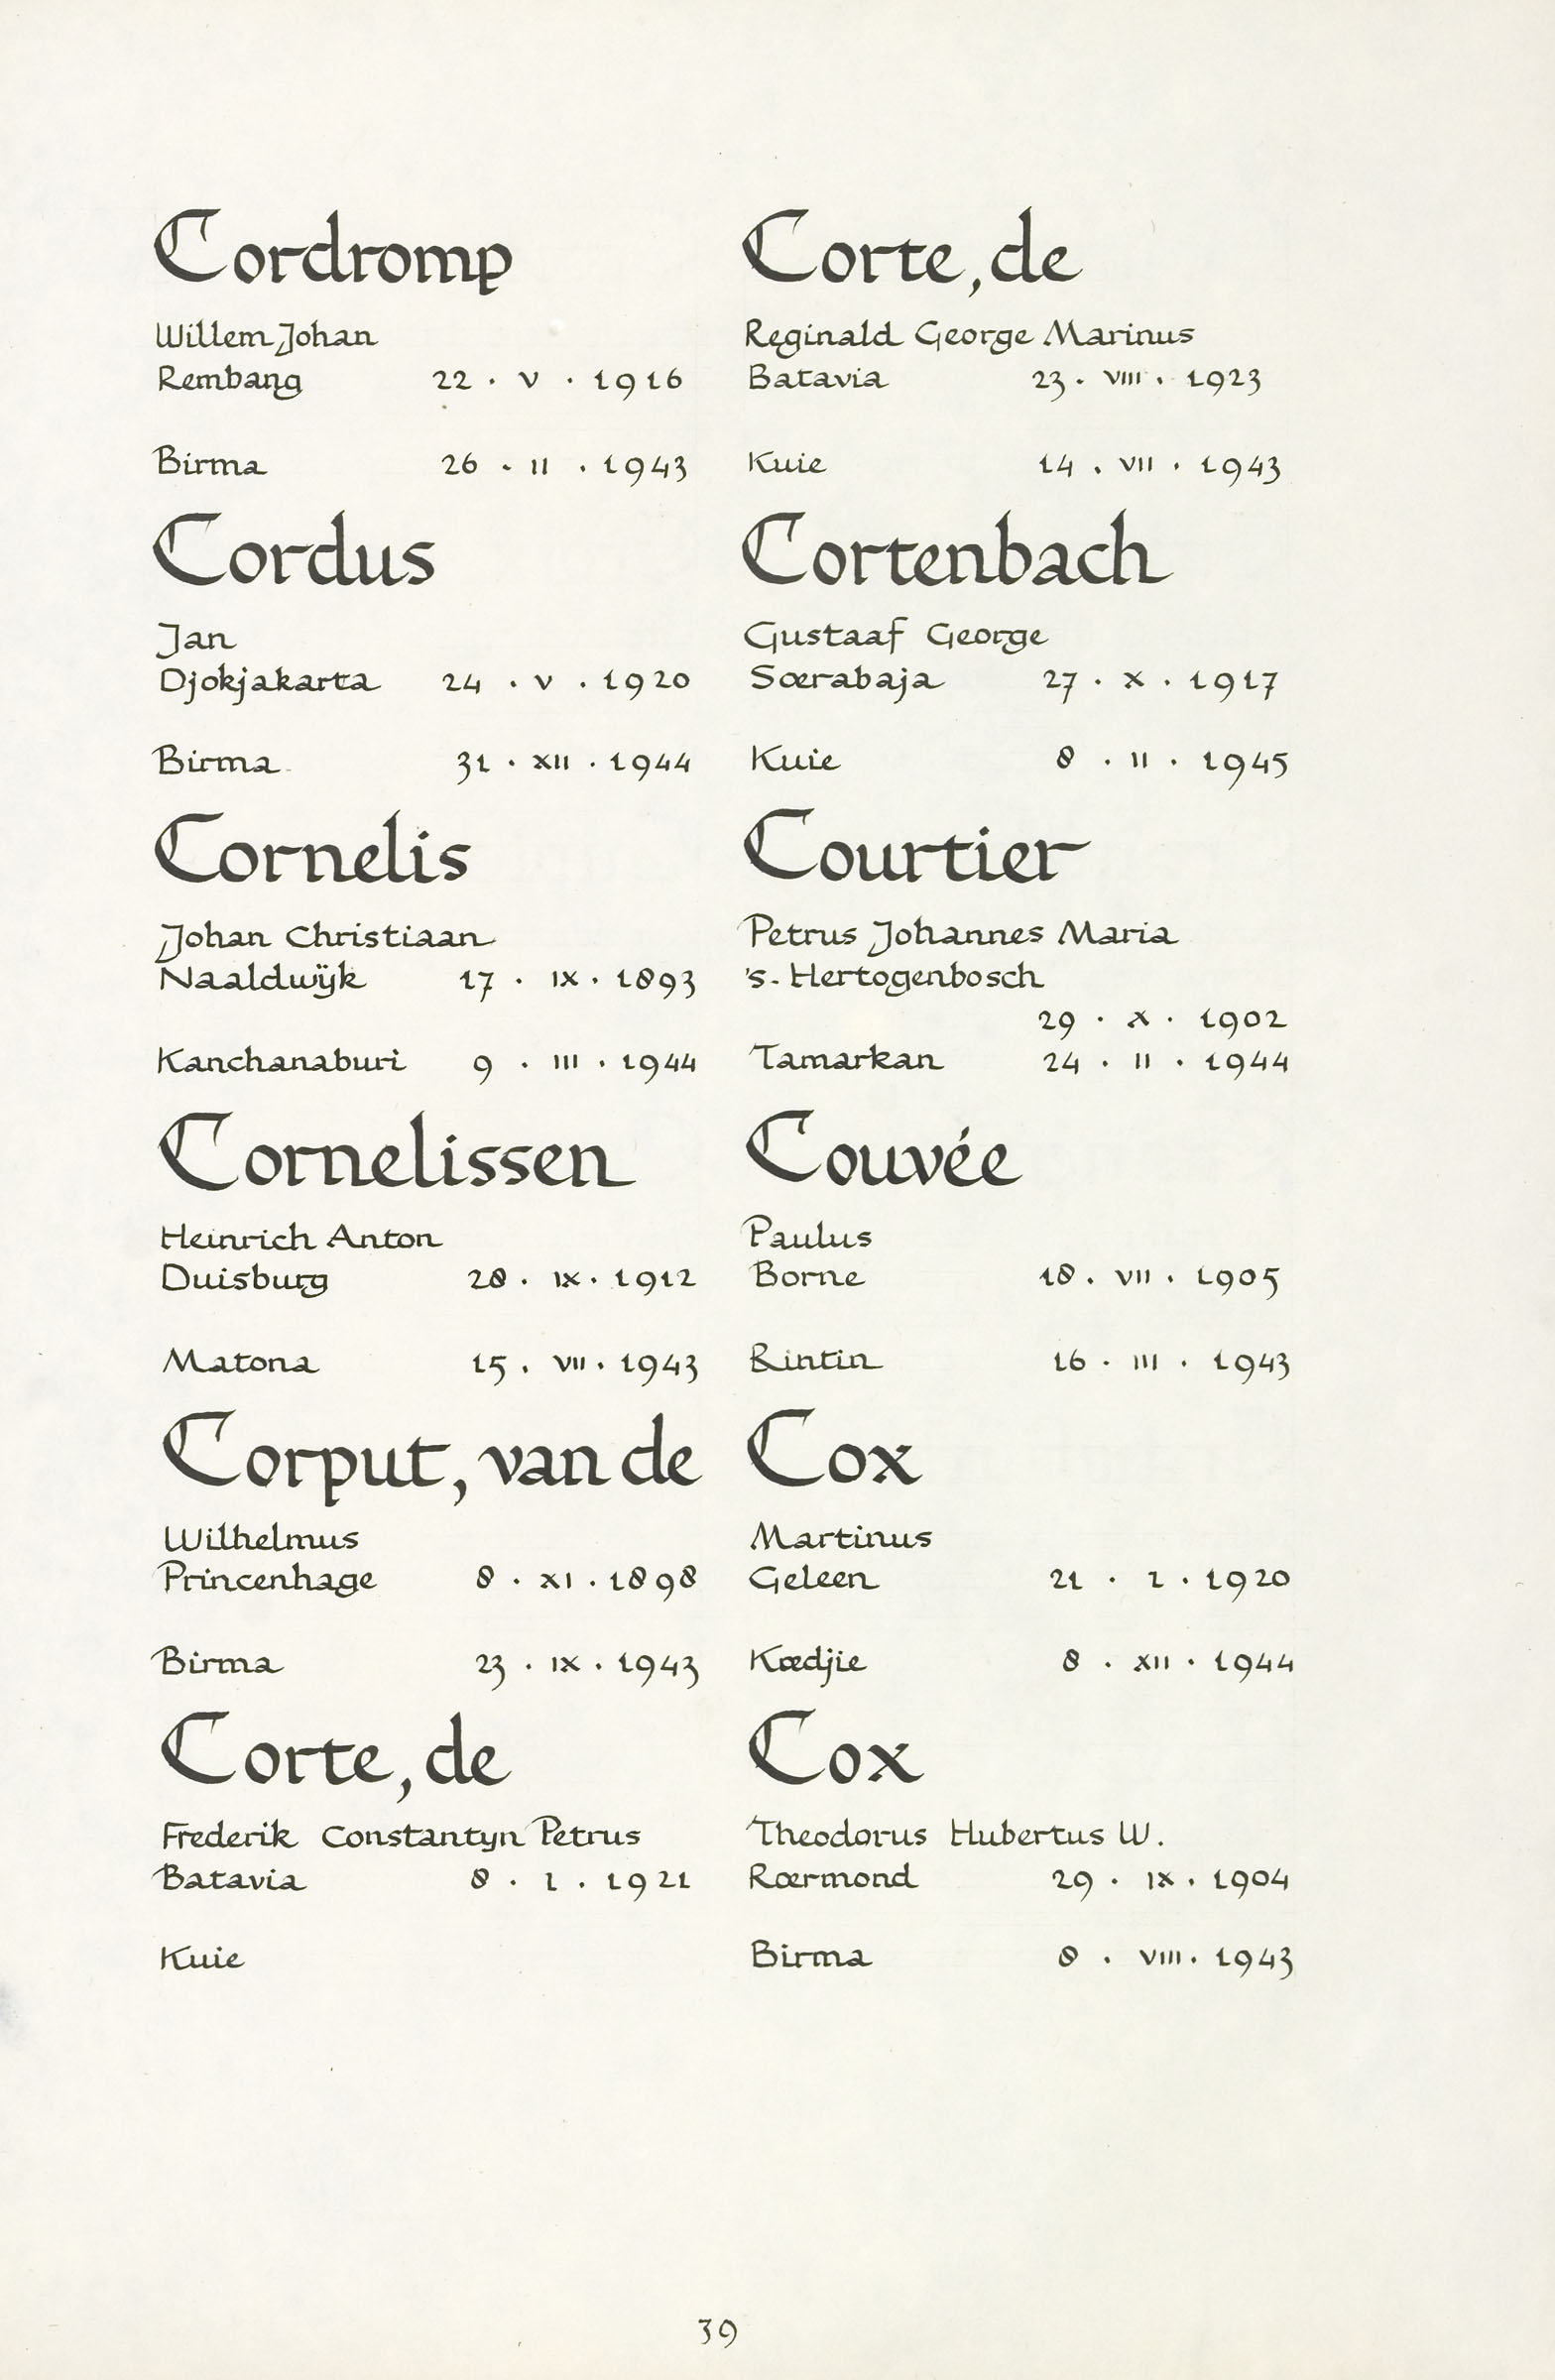 Cordromp
Willem Johan
Rembang 22 · V · 1916
Birma 26 · II · 1943
Cordus
Jan
Djokjakarta 24 · V · 1920
Birma 31 · XII · 1944
Cornelis
Johan Christiaan
Naaldwijk 17 · IX · 1893
Kanchanaburi 9 · III · 1944
Cornelissen
Heinrich Anton
Duisburg 28 · IX · 1912
Matona 15 · VII · 1943
Corput, van de
Wilhelmus
Princenhage 8 · XI · 1898
Birma 23 · IX · 1943
Corte, de
Frederik Constantyn Petrus
Batavia 8 · I · 1921
Kuie
Corte, de
Reginald George Marinus
Batavia 23 · VIII · 1923
Kuie 14 · VII · 1943
Cortenbach
Gustaaf George
Sœrabaja 27 · X · 1917
Kuie 8 · II · 1945
Courtier
Petrus Johannes Maria
's-Hertogenbosch
29 · X · 1902
Tamarkan 24 · II · 1944
Couvée
Paulus
Borne 18 · VII · 1905
Rintin 16 · III · 1943
Cox
Martinus
Geleen 21 · I · 1920
Kœdjie 8 · XII · 1944
Cox
Theodorus Hubertus W.
Rœrmond 29 · IX · 1904
Birma 8 · VIII · 1943
39